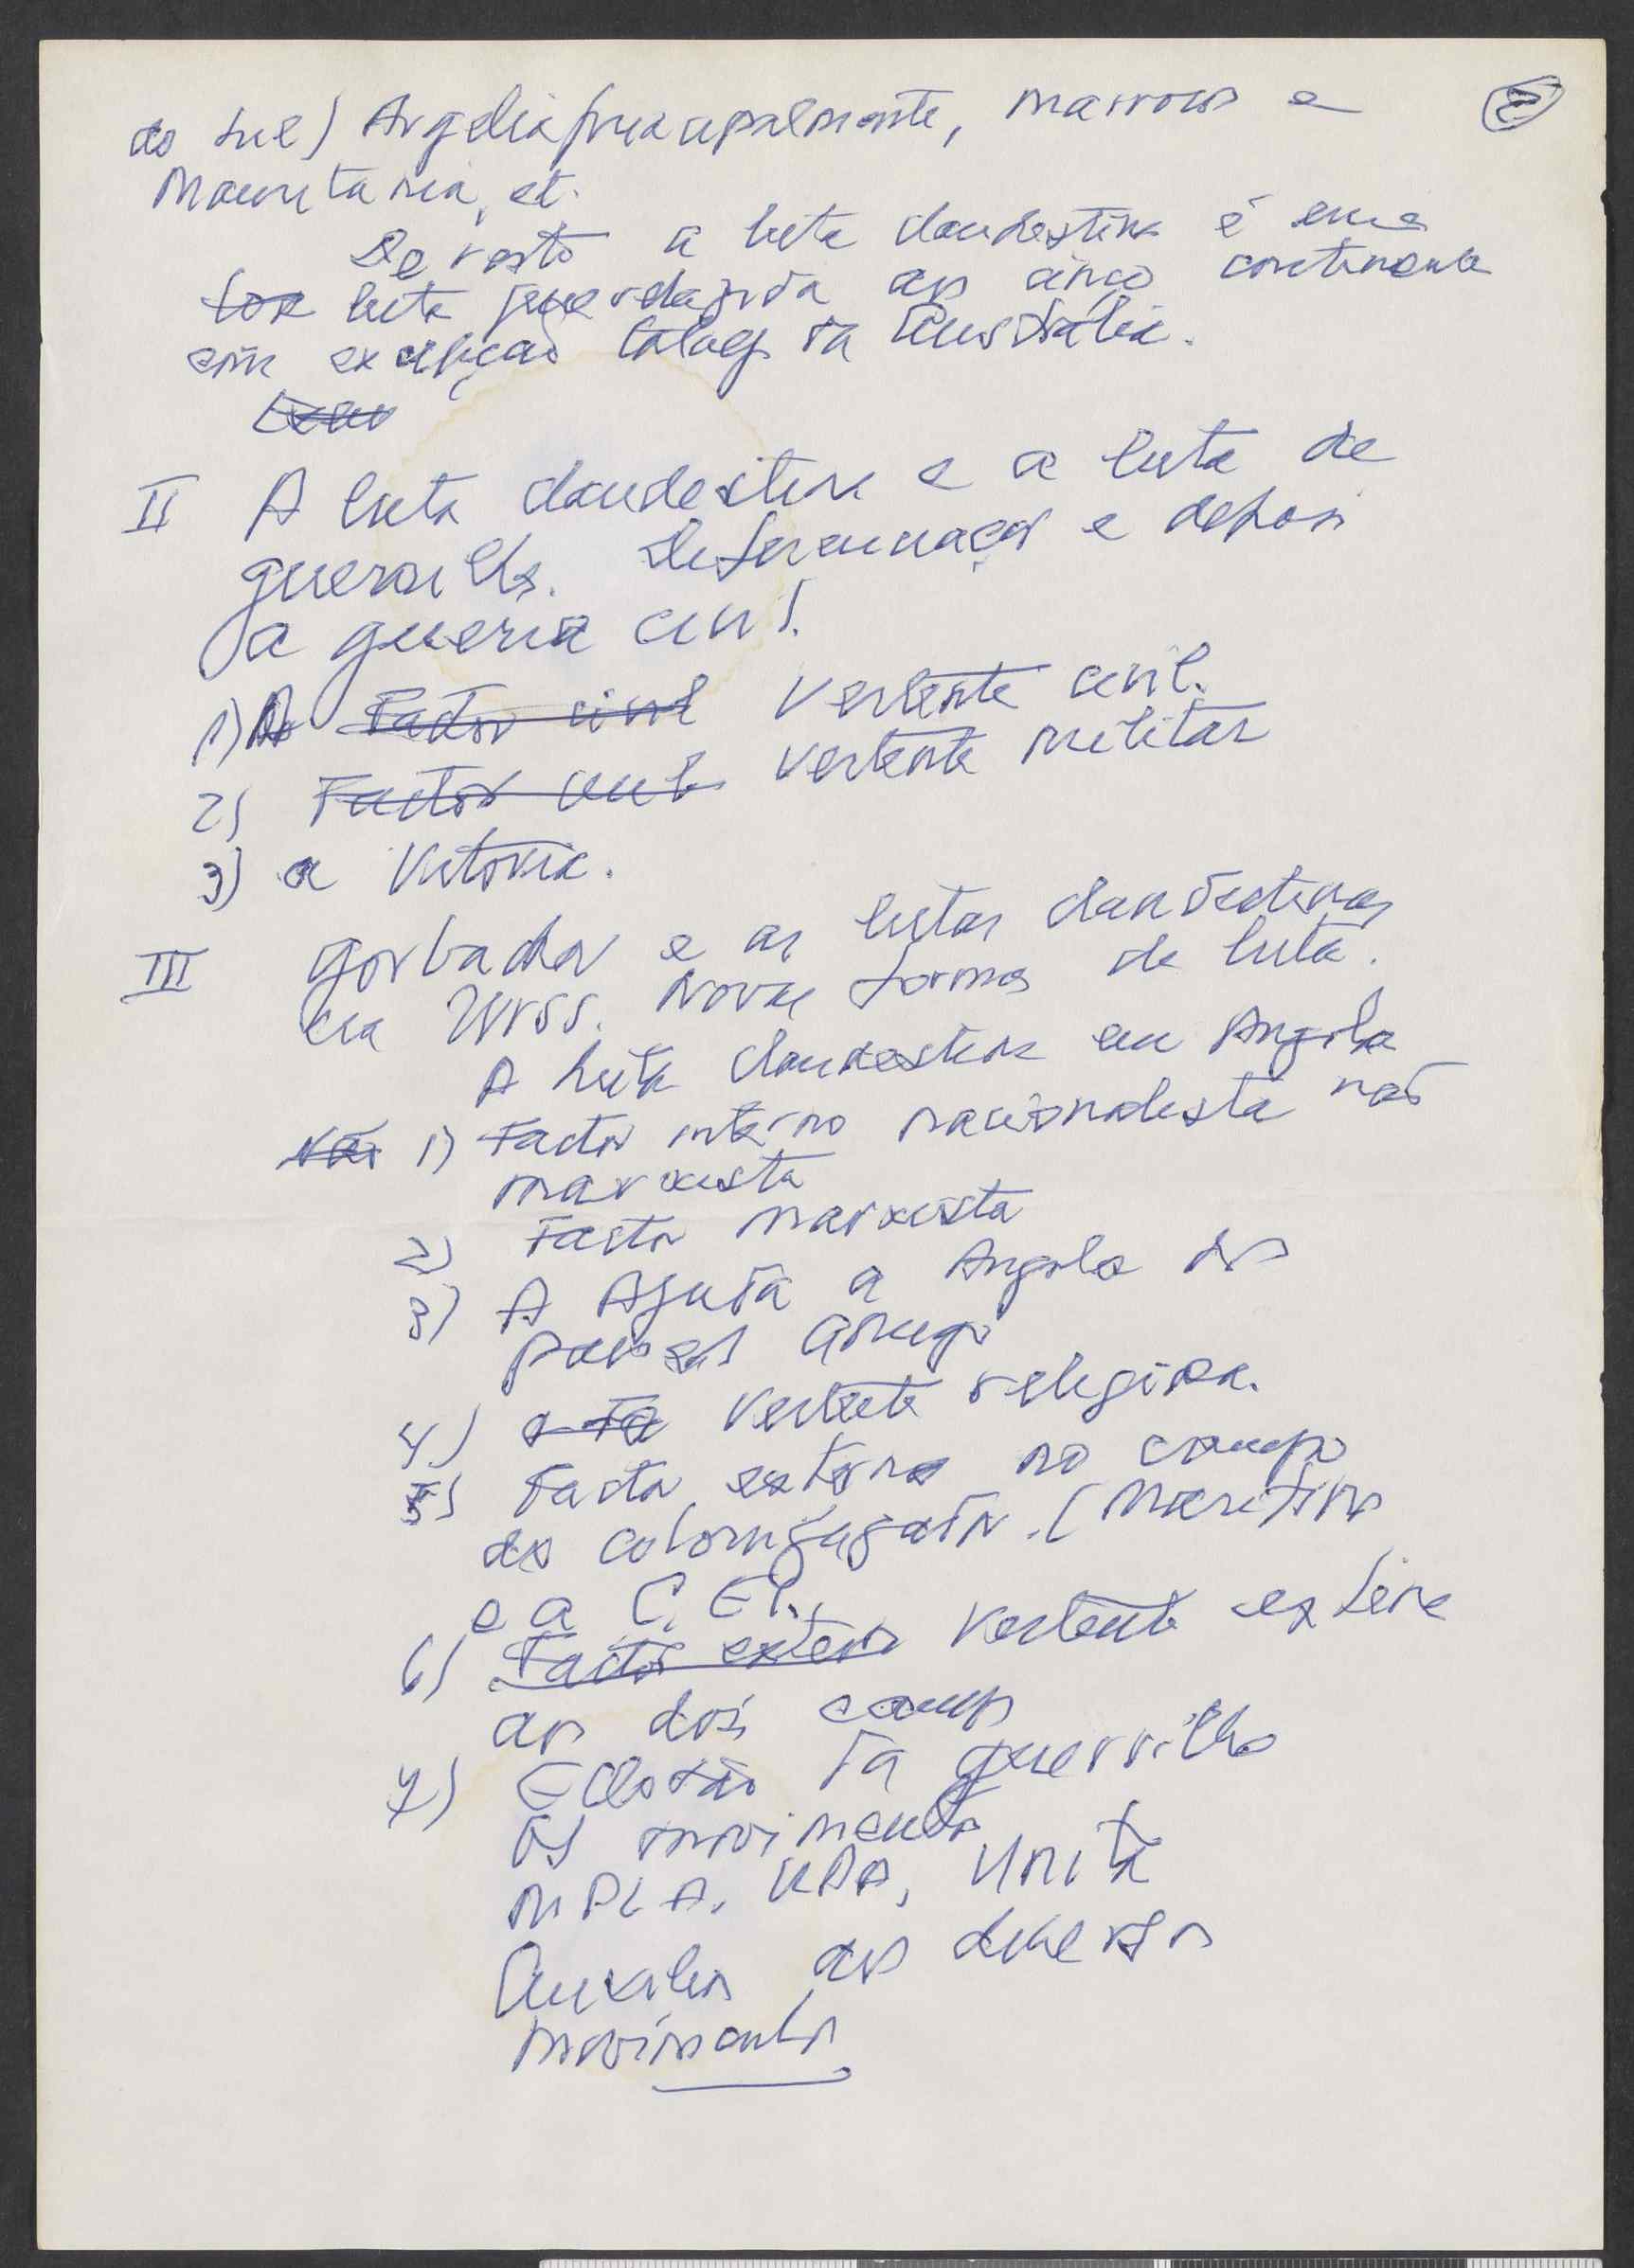 do Sul) Argelia principalmente, Marrocos e
Mauritania, et.
De resto a luta clandestina é uma
luta que aos cinco continente
com excepção talvez da Australia.
II A luta clandestina e a luta de
guerrilha. e depois
a guerra civil.
1) A Factor civil Vertente civil.
2) Factor Vertente militar
3) a Vitoria.
III Gorbachov e as lutas clandestinas
na Urss. Novas formas de luta.
A luta clandestina em Angola
Não 1) Factor interno nacionalista não
marxista
2) Factor marxista
3) A Ajuda a Angola dos
paises amigos
4) Vertente religiosa.
5) Factor externo no campo
do colonizador. (
e a C. E I.
6) Factor externo Vertente externa
aos dois campos
7) Eclosão da guerrilha
Os movimentos
MPLA, UPA, Unita
Auxilios aos diversos
movimentos